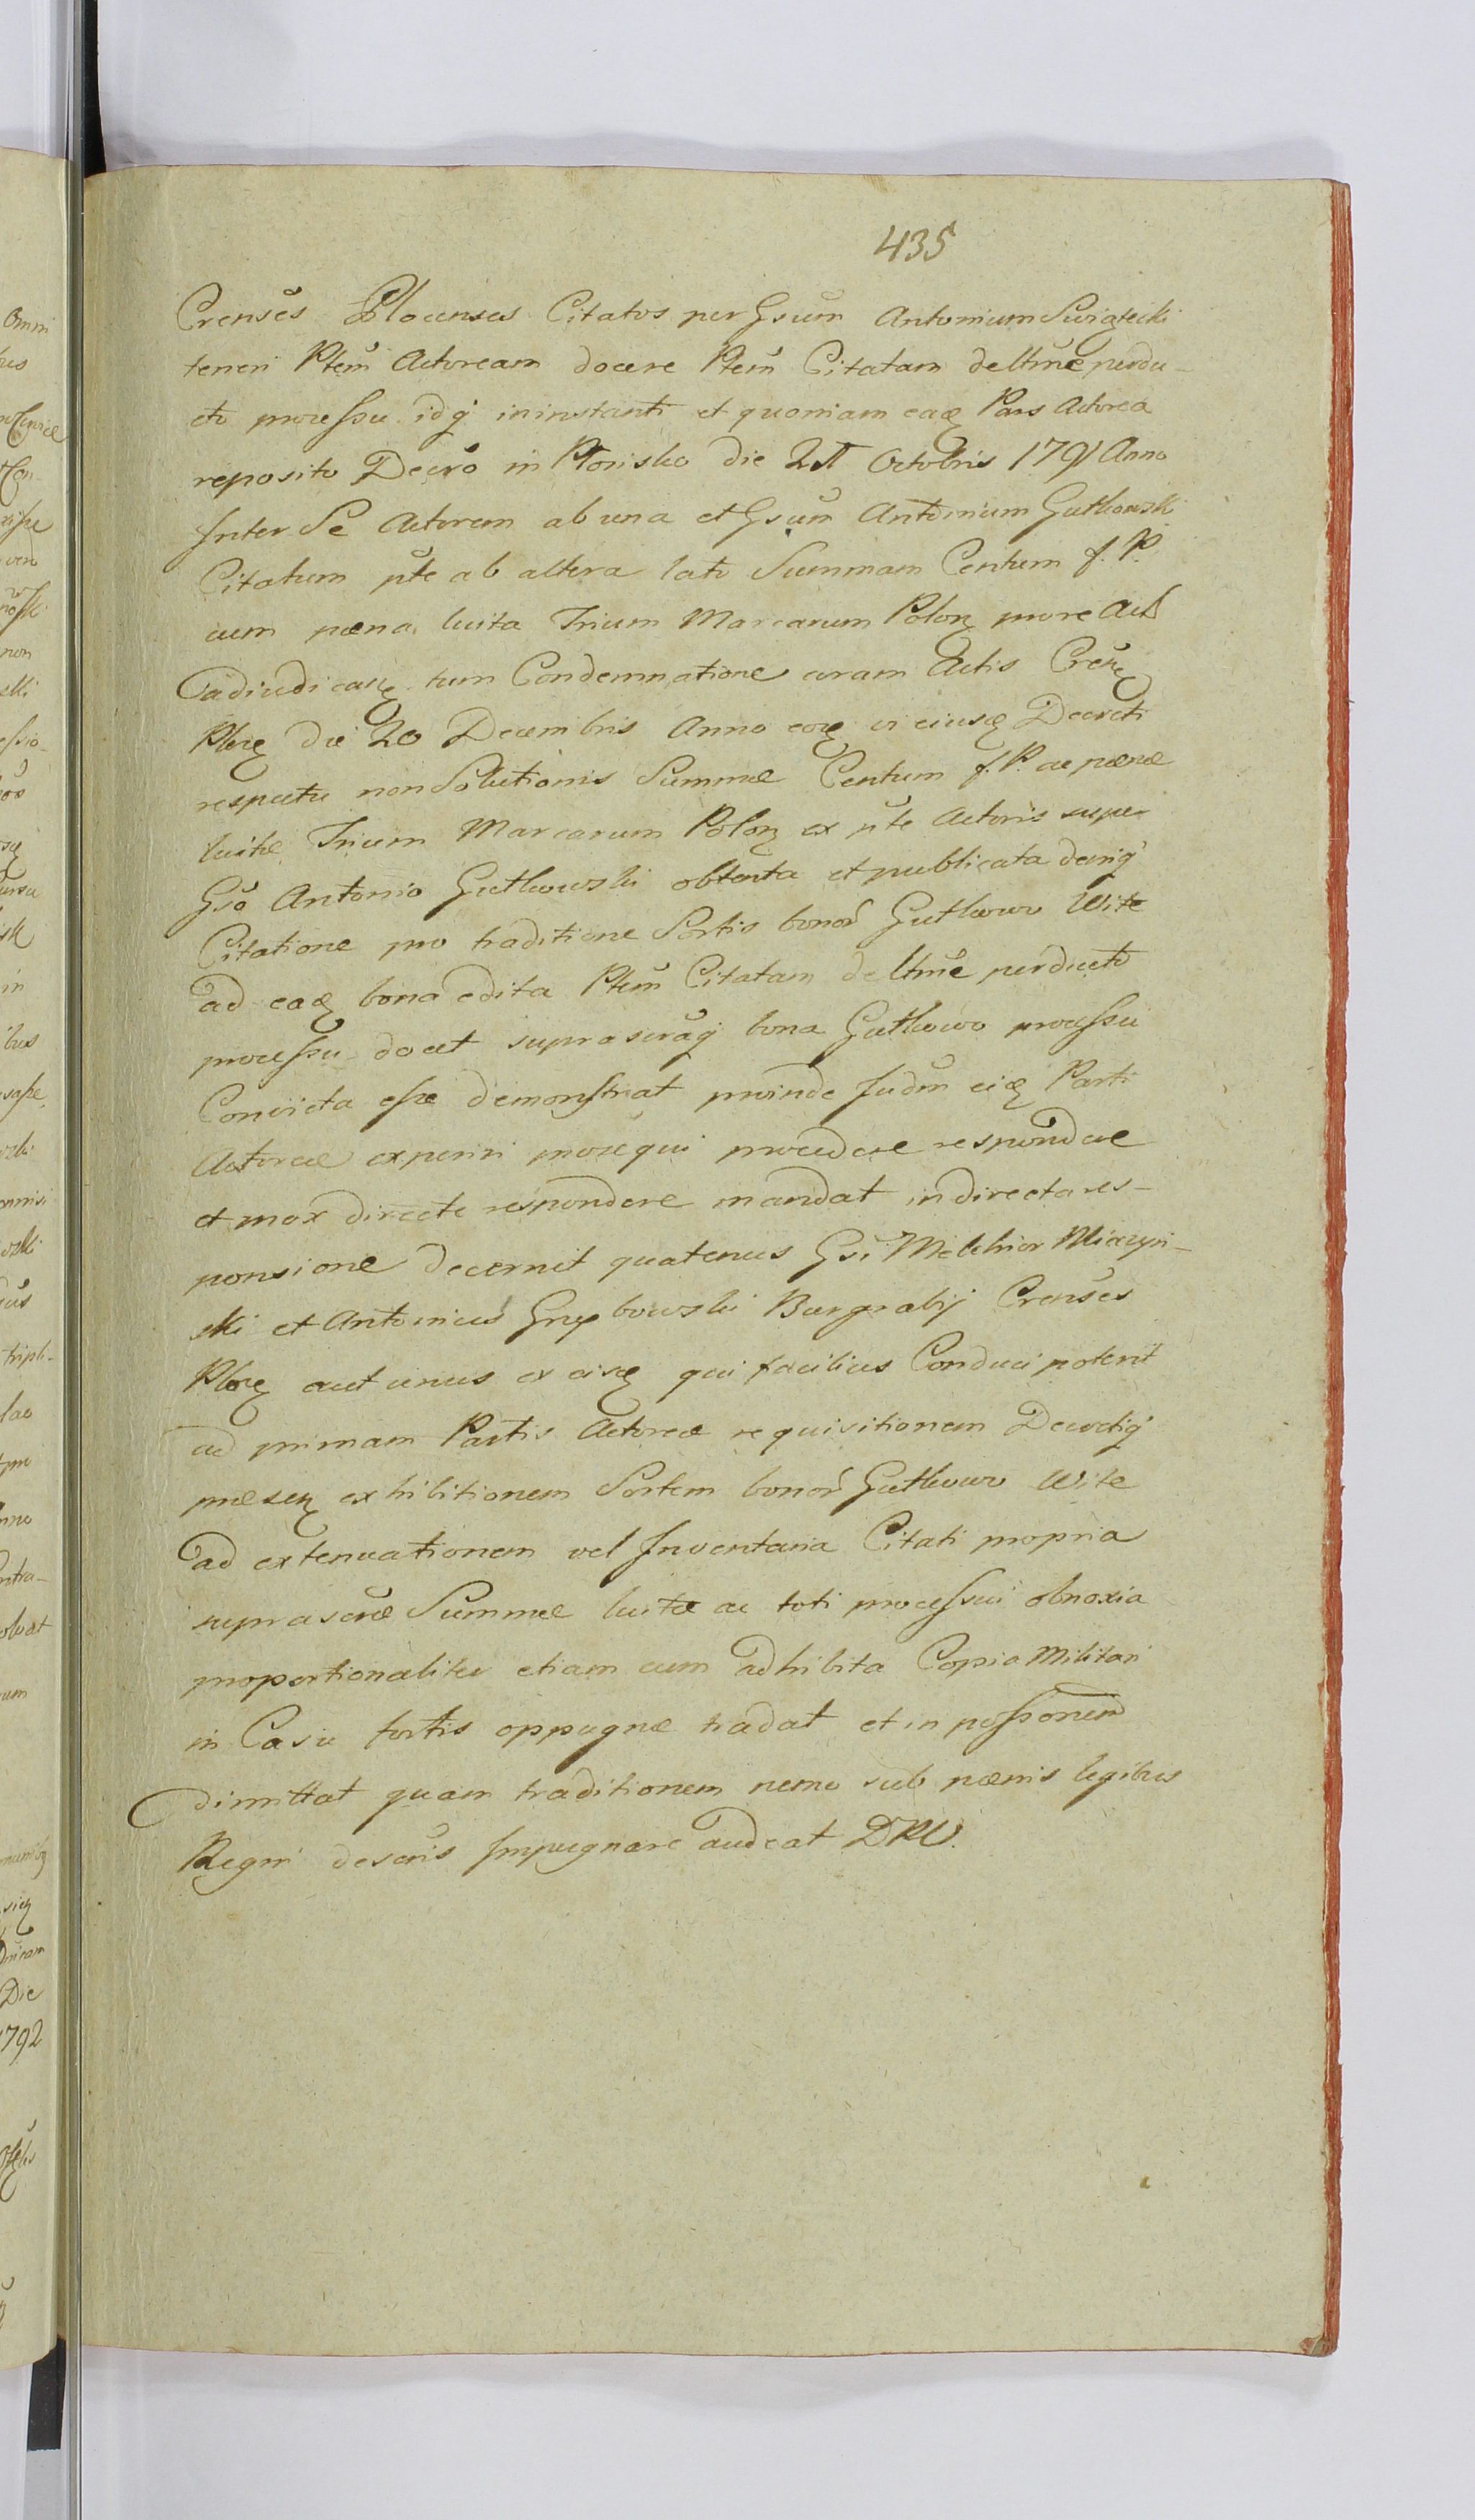 435
Crenses Plocenses Citatos per Gsum Antonium Swiątecki
teneri Ptem Actoream docere Ptem Citatam de ltme perdu-
cto processu idq̃ in instanti et quoniam eadę Pars Actorea
reposito Decro in Płońsko die 21 Octobris 1791 Anno
Inter Se Actorem ab una et Gsum Antonium Gutkowski
Citatum pte ab altera lato Summam Centum f. P.
cum pæna luita Trium Marcarum Polon more
adiudican tum Condemnatione coram Actis Cren
Plocę die 20 Decembris Anno eodę vi eiusdę Decreti
respectu non Solutionis Summæ Centum f. P. ac pænæ
luitæ Trium Marcarum Polon ex pte Actoris super
Gso Antonio Gutkowski obtenta et publicata deniq̃
Citatione pro traditione Sortis bonor Gutkowo Wite
ad eadę bona edita Ptem Citatam de ltme perducto
processu docet suprascraq̃ bona Gutkowo processu
Convicta esse demonstrat proinde Judm eidę Parti
Actoreæ experiri prosequi procedere respondere
et mox directe respondere mandat indirecta res-
ponsione decernit quatenus Gsi Melchior Miączyń-
ski et Antonius Grzybowski Burgrabij Crenses
Plocę aut unus ex eisdę qui facilius Conduci poterit
ad primam Partis Actoreæ requisitionem Decretiq̃
præsen exhibitionem Sortem bonor Gutkowo Wite
ad extenuationem vel Inventaria Citati propria
suprascræ Summæ luitæ ac toti processui obnoxia
proportionaliter etiam cum adhibita Copia Militari
in Casu fortis oppugnæ tradat et in possionem
dimittat quam traditionem nemo sub pænis legibus
Regni descris Impugnare audeat DPV.